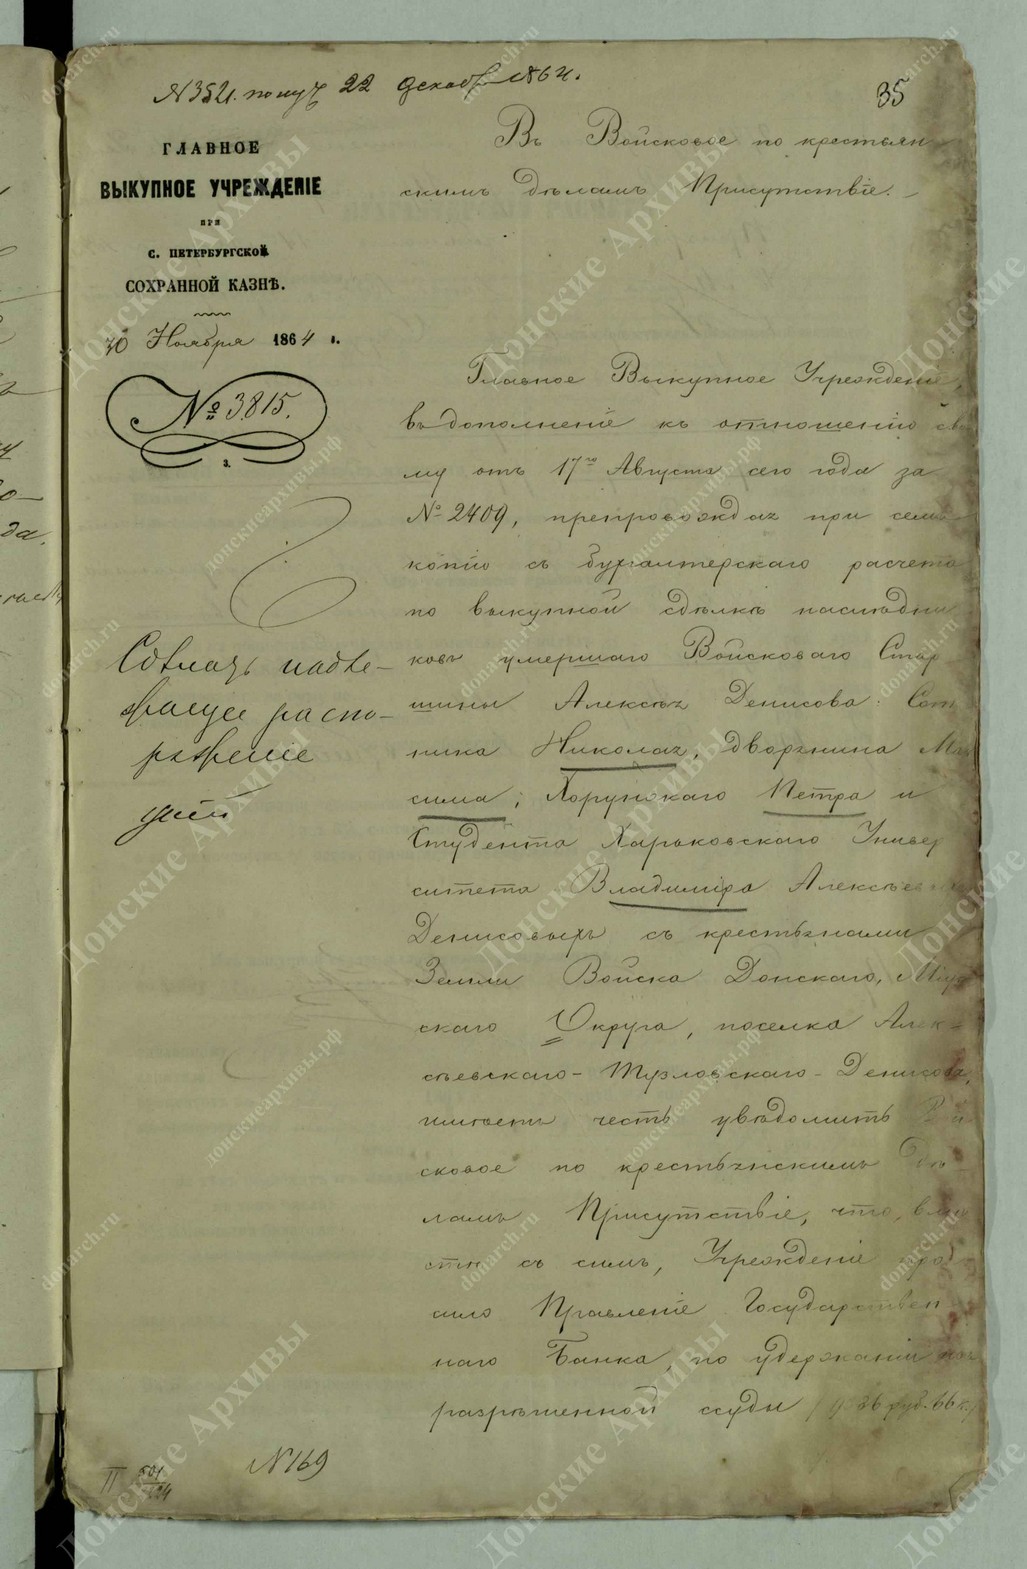 № 3521. получ 22 декаб 1864.
35
ГЛАВНОЕ
ВЫКУПНОЕ УЧРЕЖДЕНІЕ
ПРИ
С. ПЕТЕРБУРГСКОЙ
СОХРАННОЙ КАЗНѢ.
30 Ноября 1864 г.
№ 3815.
3.
Въ Войсковое по крестьян
скимъ дѣламъ Присутствіе.
Главное Выкупное Учрежденіе,
въ дополненіе къ отношенію сво
му отъ 17го Августа сего года за
№ 2409, препровождая при семъ
копію съ бухгалтерскаго расчета
по выкупной сдѣлкѣ наслѣдни
ковъ умершаго Войсковаго Стар
шины Алексѣя Денисова: Сот
ника Николая, дворянина Мак
сима; Хорунжаго Петра и
Студента Харьковскаго Универ
ситета Владиміра Алексѣев
Денисовыхъ съ крестьянами
Земли Войска Донскаго, Міус
скаго Округа, поселка Алек-
сѣевскаго-Тузловскаго-Денисова,
имѣетъ честь увѣдомить Вой
сковое по крестьянскимъ дѣ-
ламъ Присутствіе, что, вмѣ
стѣ съ симъ, Учрежденіе про
сило Правленіе Государствен
наго Банка, по удержаніи изъ
разрѣшенной ссуды
Сдѣлать надле-
жащее распо-
ряженіе
№ 169
II